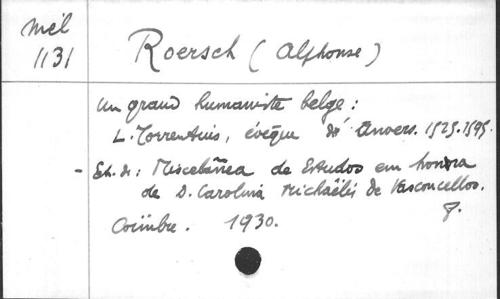 Mél
1131
Roersch (Alphonse)
Un grand humaniste belge :
L. Torrentius, évêque d'Anvers. 1525-1595.
- Ext. de : Miscelânea de Estudos em honra
de D. Carolina Michaëlis de Vasconcellos.
Coimbre. 1930.